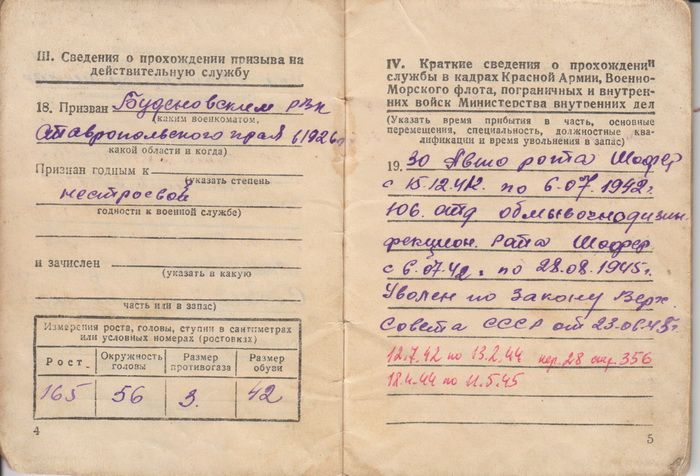 III. Сведения о прохождении призыва на
действительную службу
18. Призван Буденовским РВК
(каким военкоматом,
Ставропольского края в 1926г.
какой области и когда)
Признан годным к
(указать степень
нестроевой
годности к военной службе)
и зачислен
(указать в какую
часть или в запас)
Измерения роста, головы, ступни в сантиметрах
или условных номерах (ростовках)
Рост Окружность головы Размер противогаза Размер обуви
165 56 3. 42
4
IV. Краткие сведения о прохождении
службы в кадрах Красной Армии, Военно-
Морского флота, пограничных и внутрен-
них войск Министерства внутренних дел
(Указать время прибытия в часть, основные
перемещения, специальность, должностные ква-
лификации и время увольнения в запас)
19. 30 Авто рота Шофер
с 15.12.41г. по 6.07.1942г.
106. отд обмывочнодизин
фекцион. Рота Шофер
с 6.07.42г. по 28.08.1945г.
Уволен по Закону Верх.
Совета СССР от 23.06.45г.
12.7.42 по 13.2.44 пер. 28 стр. 356
18.4.44 по 11.5.45
5